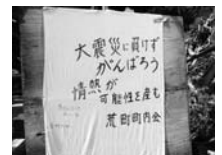 大震災に負けず
がんばろう
情熱が
可能性を産む
荒町町内会